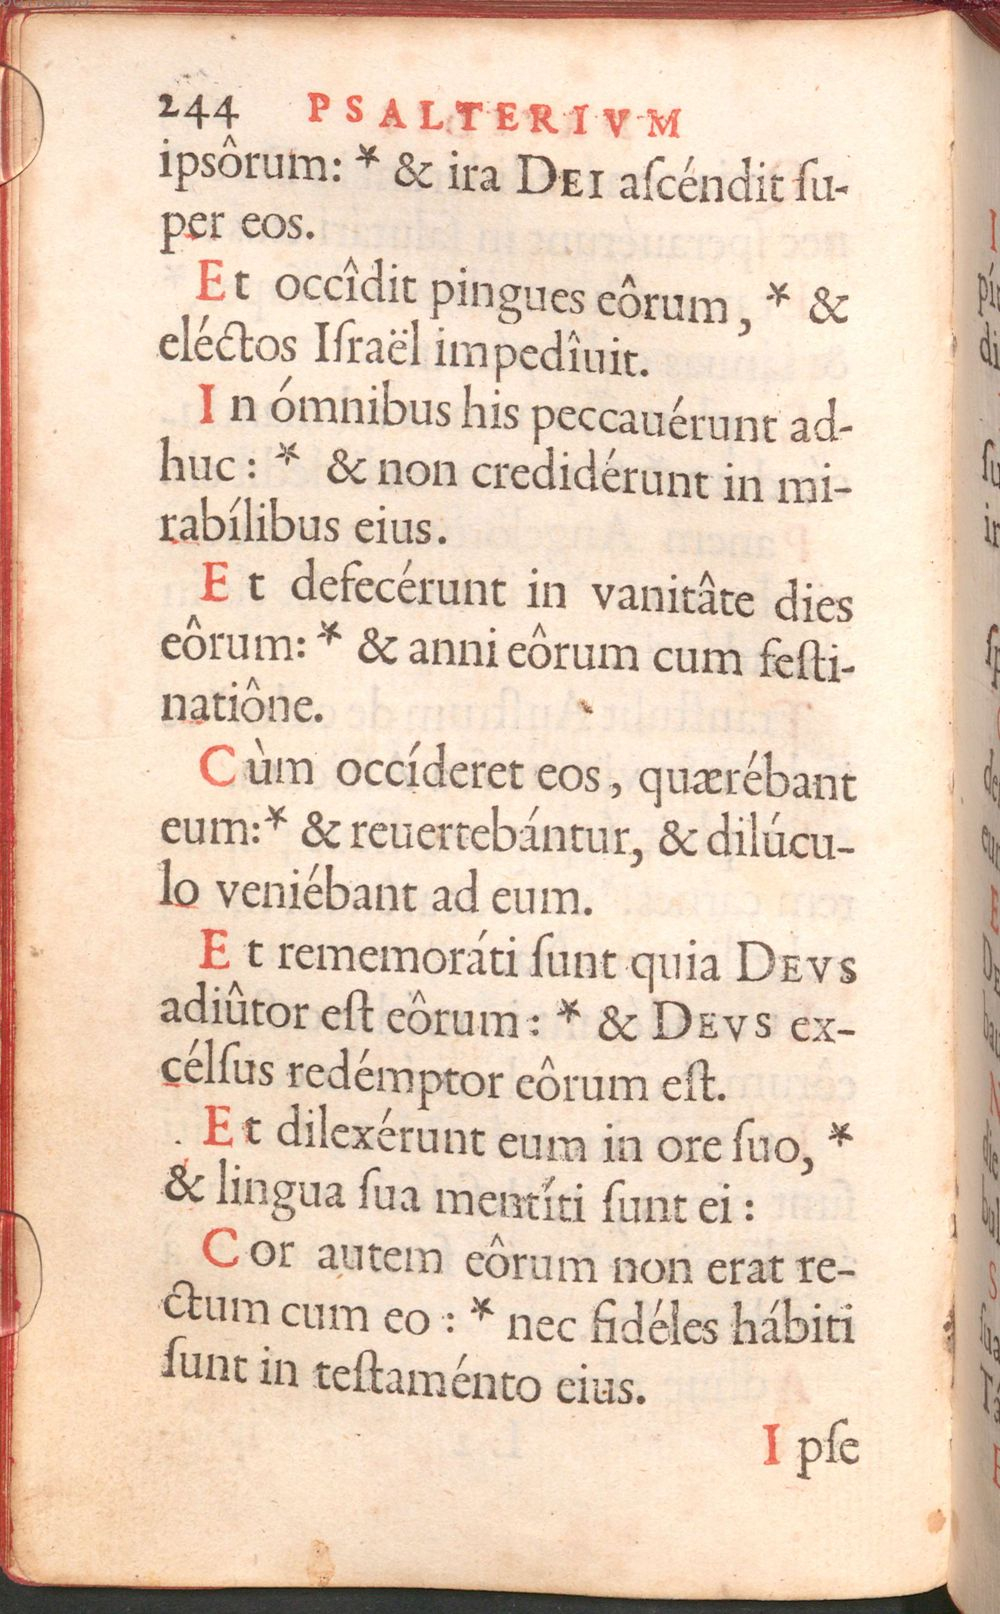 244 PSALTERIVM
ipsôrum: * & ira DEI aſcéndit ſu-
per eos.
Et occîdit pingues eôrum, * &
eléctos Iſraël impedîuit.
In ómnibus his peccauérunt ad-
huc: * & non credidérunt in mi-
rabílibus eius.
Et defecérunt in vanitâte dies
eôrum: * & anni eôrum cum feſti-
natiône.
Cùm occíderet eos, quærébant
eum: * & reuertebántur, & dilúcu-
lo veniébant ad eum.
Et rememoráti ſunt quia DEVS
adiûtor eſt eôrum: * & DEVS ex-
célſus redémptor eôrum eſt.
Et dilexérunt eum in ore ſuo, *
& lingua ſua mentíti ſunt ei:
Cor autem eôrum non erat re-
ctum cum eo: * nec fidéles hábiti
ſunt in teſtaménto eius.
Ipſe